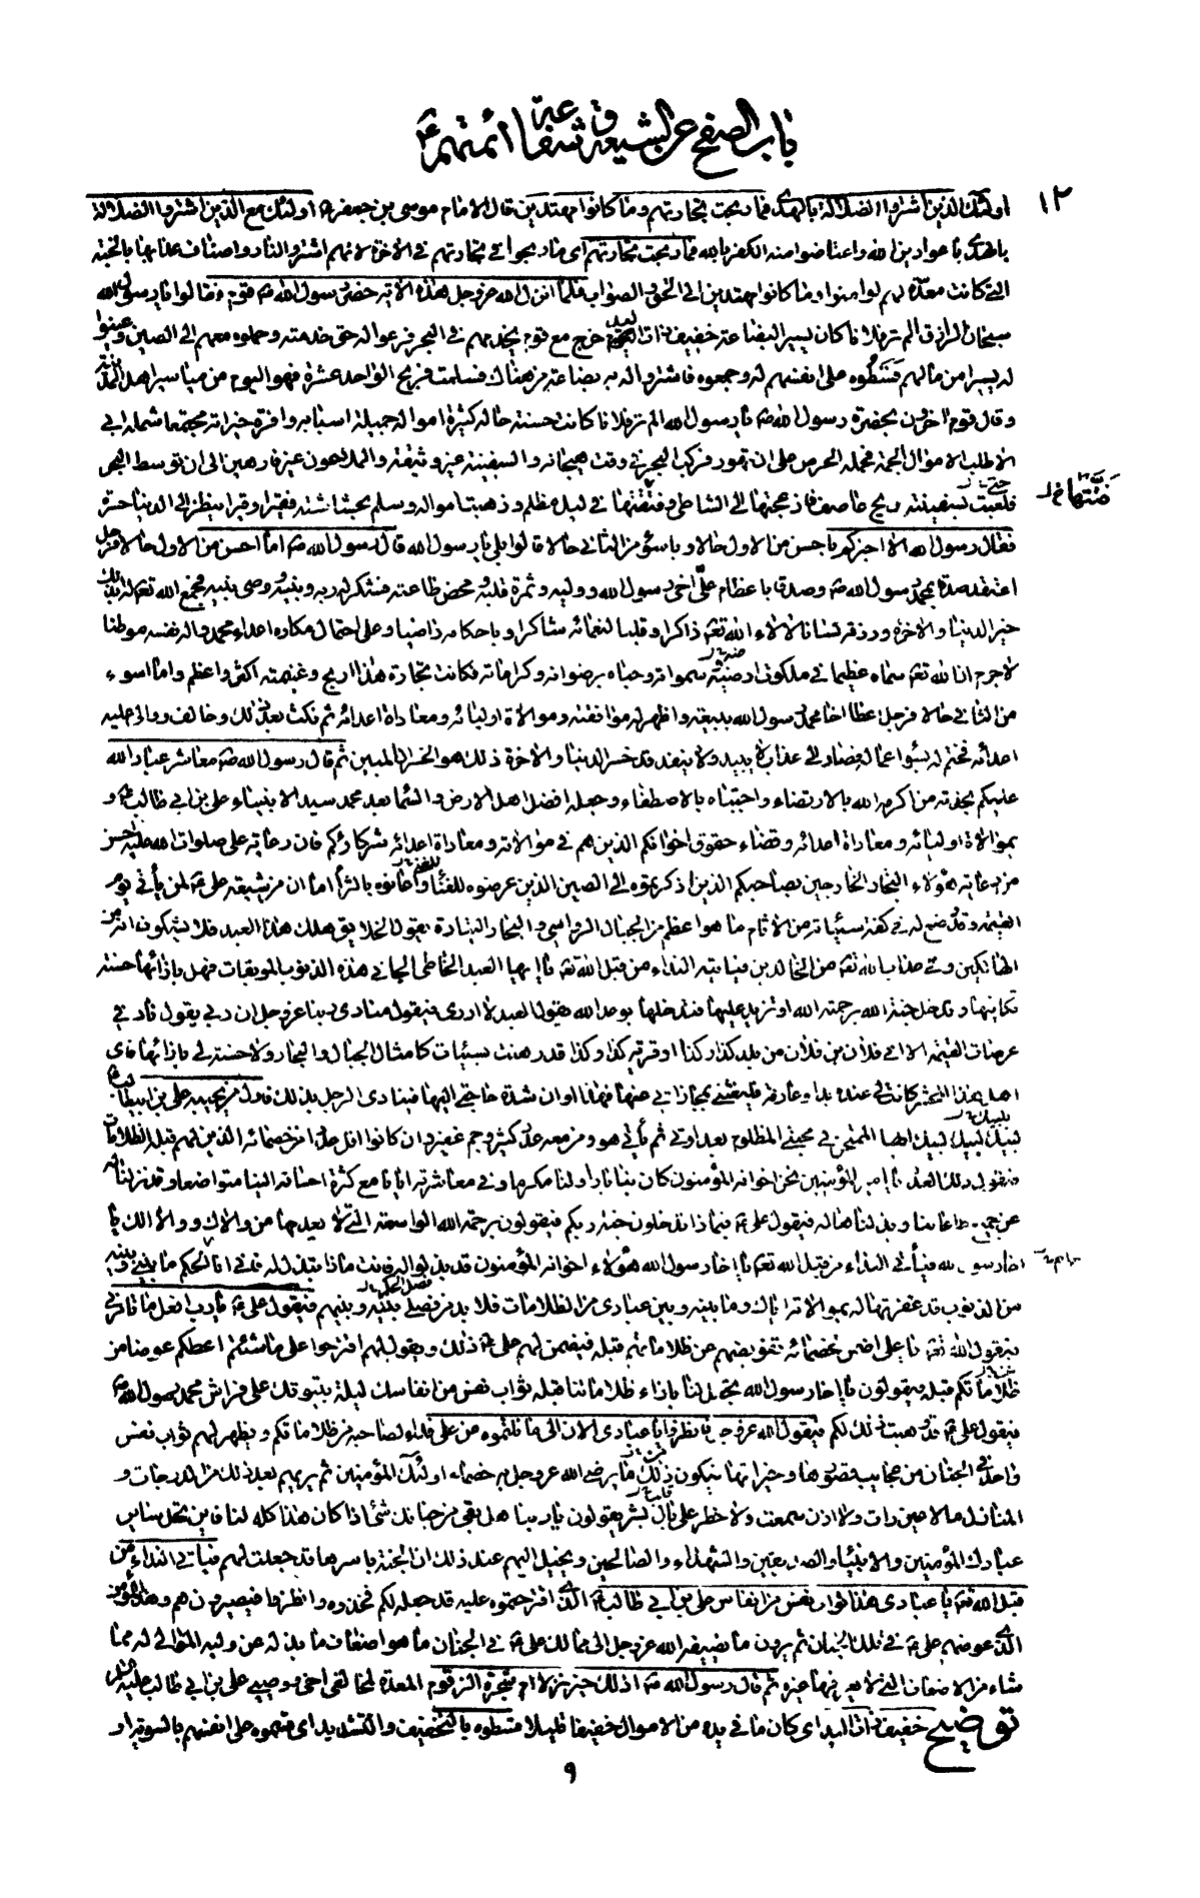 باب الصفح عن الشيعة و شفاعة ائمتهم
١٢
اولئك الذين اشتروا الضلالة بالهدى فما ربحت تجارتهم وما كانوا مهتدين قال الامام موسى بن جعفر اولئك مع الذين اشتروا الضلالة
بالهدى باعوا دين الله واعتاضوا منه الكفر بالله فما ربحت تجارتهم اى ما ربحوا في تجارتهم في الاخرة لانهم اشتروا النار واصناف عذابها بالجنة
التي كانت معدة لهم لو امنوا وما كانوا مهتدين الى الحق والصواب فلما انزل الله عز وجل هذه الاية حضر رسول الله ص قوم فقالوا يا رسول الله
سبحان الرازق الم تر فلانا كان يسير البضاعة خفيف ذات اليد خرج مع قوم يخدمهم في البحر فرعوا له حق خدمته وحملوه معهم الى الصين وعينوا
له يسيرا من مالهم قسطوه على انفسهم له وجمعوه فاشتروا له به بضاعة من هناك فسلمت فربح الواحد عشرة فهو اليوم من مياسير اهل المدينة
وقال قوم اخرون بحضرة رسول الله ص يا رسول الله الم تر فلانا كانت حسنة حاله كثيرة امواله جميلة اسبابه وافرة خيراته مجتمعا شمله ابى
الا طلب الاموال الجمة فحمله الحرص على ان تهور فركب البحر في وقت هيجانه والسفينة غير وثيقة والملاحون غير فارهين الى ان توسط البحر
فلعبت بسفينته ريح عاصف فازعجتها الى الشاطئ وفتقتها في ليل مظلم وذهبت امواله وسلم بحشاشته فقيرا وقيرا ينظر الى الدنيا حسرة
فقال رسول الله الا اخبركم باحسن من الاول حالا وباسوء من الثاني حالا قالوا بلى يا رسول الله قال رسول الله ص اما احسن من الاول حالا فرجل
اعتقد صدقا بمحمد رسول الله ص وصدق باعظام على اخى رسول الله ووليه وثمرة قلبه ومحض طاعته فشكر له ربه ونبيه ووصى نبيه فجمع الله تعالى له بذلك
خير الدنيا والاخرة ورزقه لسانا لالاء الله تعالى ذاكرا وقلبا لنعمائه شاكرا وباحكامه راضيا وعلى احتمال مكاره اعداء محمد واله نفسه موطنا
لا جرم ان الله تعالى سماه عظيما في ملكوت ارضيه وسمواته وحباه برضوانه وكراماته فكانت تجارة هذا اربح وغنيمته اكثر واعظم واما اسوء
من الثاني حالا فرجل اعطا اخا محمد رسول الله ببيعته واظهر له موافقته وموالاة اوليائه ومعاداة اعدائه ثم نكث بعد ذلك وخالف ووالى عليه
اعدائه فختم له بسوء اعماله فصار الى عذاب لا يبيد ولا ينفد قد خسر الدنيا والاخرة ذلك هو الخسران المبين ثم قال رسول الله ص معاشر عباد الله
عليكم بخدمة من اكرمه الله بالارتضاء واجتباه بالاصطفاء وجعله افضل اهل الارض والسماء بعد محمد سيد الانبياء على بن ابى طالب و
بموالاة اوليائه ومعاداة اعدائه وقضاء حقوق اخوانكم الذين هم في موالاته ومعاداة اعدائه شركاؤكم فان رعاية على صلوات الله عليه احسن
من رعاية هؤلاء التجار الخارجين بصاحبكم الذين ذكرتموه الى الصين الذين عرضوه للغناء واعانوه بالثراء اما ان من شيعة على لمن ياتي يوم
القيمة وقد وضع له في كفة سيئاته من الاثام ما هو اعظم من الجبال الرواسي والبحار التيارة يقول الخلايق هلك هذا العبد فلا يشكون انه من
الهالكين وفي عذاب الله تعالى من الخالدين فياتيه النداء من قبل الله تعالى يا ايها العبد الخاطى الجاني هذه الذنوب الموبقات فهل بازائها حسنة
تكافيها وتدخل جنة الله برحمة الله او تزيد عليها فتدخلها بوعد الله فيقول العبد لا ادرى فيقول منادى ربنا عز وجل ان ربى يقول ناد في
عرصات القيمة الا انى فلان من فلان من بلد كذا وكذا او قرية كذا وكذا قد رهنت بسيئات كامثال الجبال والبحار ولا حسنة لي بازائها فاى
اهل هذا المحشر كانت لى عنده يد او عارفة فليغثنى بمجازاتي عنها فهذا اوان شدة حاجتى اليها فينادى الرجل بذلك فاول من يجيبه على بن ابيطالب
لبيك لبيك لبيك ايها الممتحن في محبتي المظلوم بعداوتي ثم ياتي هو ومن معه عدد كثير وجم غفير وان كانوا اقل عددا من خصمائه الذين لهم قبله الظلامات
فيقول ذلك العدد يا امير المؤمنين نحن اخوانه المؤمنون كان بنا بارا ولنا مكرما وفي معاشرته ايانا مع كثرة احسانه الينا متواضعا وقد نزلنا له
عن جميع طاعاتنا وبذلناها له فيقول على ع فبماذا تدخلون جنة ربكم فيقولون برحمة الله الواسعة التي لا يعدمها من والاك ووالى الك يا
اخا رسول الله فياتي النداء من قبل الله تعالى يا اخا رسول الله هؤلاء اخوانه المؤمنون قد بذلوا له فانت ماذا تبذل له فانى انا الحكم ما بيني وبينه
من الذنوب قد غفرتها له بموالاته اياك وما بينه وبين عبادى من الظلامات فلا بد من فصلى بينه وبينهم فيقول على ع يا رب افعل ما تامرني
فيقول الله تعالى يا على اضمن لخصمائه تعويضهم عن ظلاماتهم قبله فيضمن لهم على ع ذلك ويقول لهم اقترحوا على ما شئتم اعطكم عوضا من
ظلاماتكم قبله فيقولون يا اخا رسول الله تجعل لنا بازاء ظلاماتنا قبله ثواب نفس من انفاسك ليلة بيتوتك على فراش محمد رسول الله ص
فيقول على ع قد وهبت ذلك لكم فيقول الله عز وجل فانظروا يا عبادى الان الى ما نلتموه من على فداء لصاحبه من ظلاماتكم ويظهر لهم ثواب نفس
واحد في الجنان من عجايب قصورها وخيراتها فيكون ذلك ما يرضى الله عز وجل به خصماء اولئك المؤمنين ثم يريهم بعد ذلك من الدرجات و
المنازل ما لا عين رات ولا اذن سمعت ولا خطر على بال بشر يقولون يا ربنا هل بقى من جناتك شئ اذا كان هذا كله لنا فاين تحل ساير
عبادك المؤمنين والانبياء والصديقين والشهداء والصالحين ويخيل اليهم عند ذلك ان الجنة باسرها قد جعلت لهم فياتي النداء من
قبل الله تعالى يا عبادى هذا ثواب نفس من انفاس على بن ابي طالب الذى اقترحتموه عليه قد جعله لكم فخذوه وانظروا فيصيرون هم وهذا المؤمن
الذى عوضهم على ع في تلك الجنان ثم يرون ما يضيفه الله عز وجل الى ممالك على ع في الجنان ما هو اضعاف ما بذله عن وليه الموالى له مما
شاء من الاضعاف التي لا يعرفها غيره ثم قال رسول الله ص اذلك خير نزلا ام شجرة الزقوم المعدة لمخالفى اخى ووصيى على بن ابى طالب
توضيح خفيف ذات اليد اى كان ما في يده من الاموال خفيفا قليلا قسطوه بالتخفيف والتشديد اى قسموه على انفسهم بالسوية او
٩